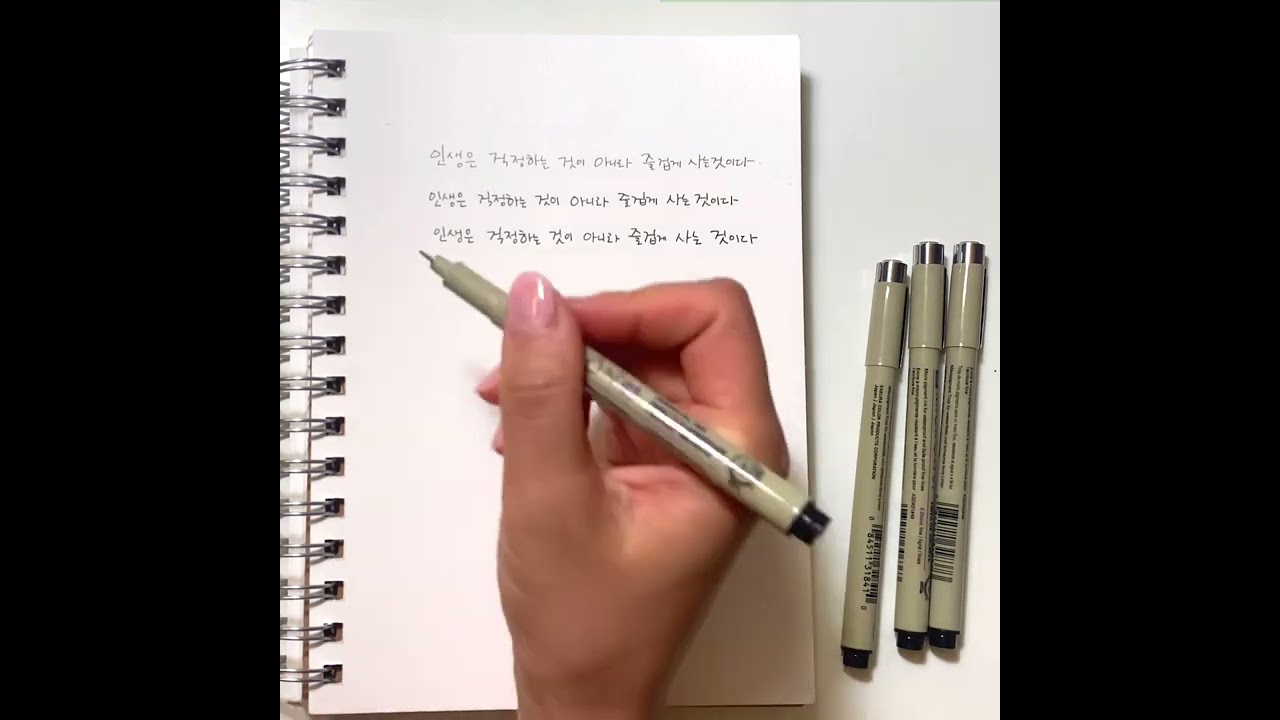 인생은 걱정하는 것이 아니라 즐겁게 사는것이다.
인생은 걱정하는 것이 아니라 즐겁게 사는것이다
인생은 걱정하는 것이 아니라 즐겁게 사는 것이다
SAKURA COLOR PRODUCTS CORPORATION
Japan / Japon / Japón
0 84511 31841 0